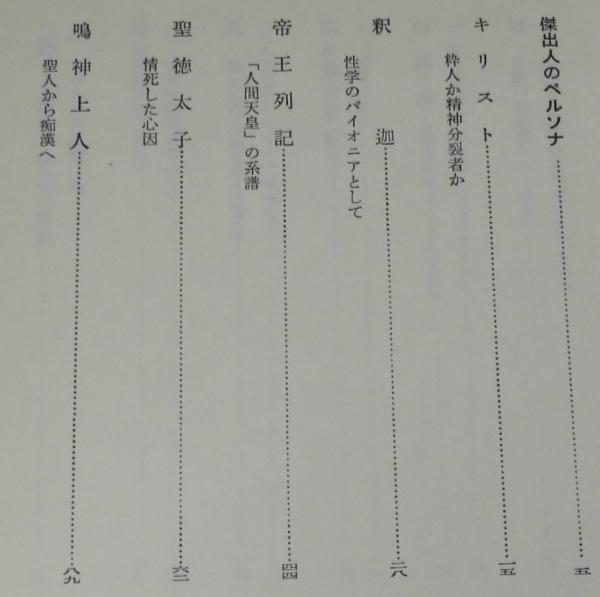 傑出人のペルソナ……………五
キリスト……………一五
粋人か精神分裂者か
釈迦……………二八
性学のパイオニアとして
帝王列記……………四四
「人間天皇」の系譜
聖徳太子……………六二
情死した心因
鳴神上人……………八九
聖人から痴漢へ